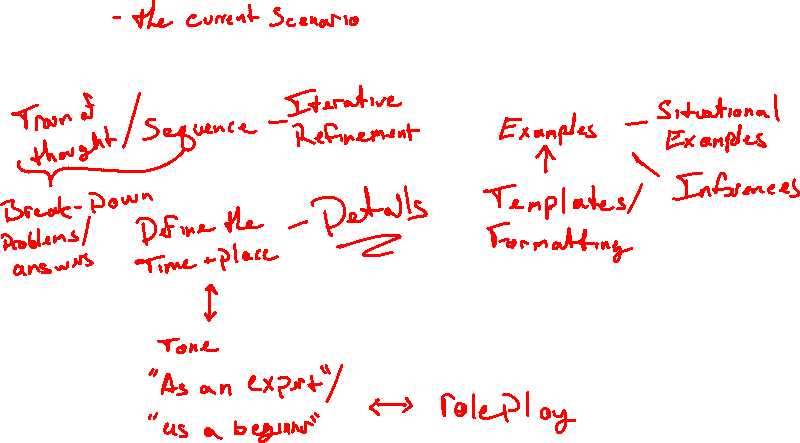 - the current Scenario
Train of
thought / Sequence - Iterative
Refinement
Break-Down
Problems/
answers
Define the
Time + place - Details
Tone
"As an expert"/
"as a beginner"
↔ roleplay
Examples - Situational
Examples
Inferences
Templates/
Formatting